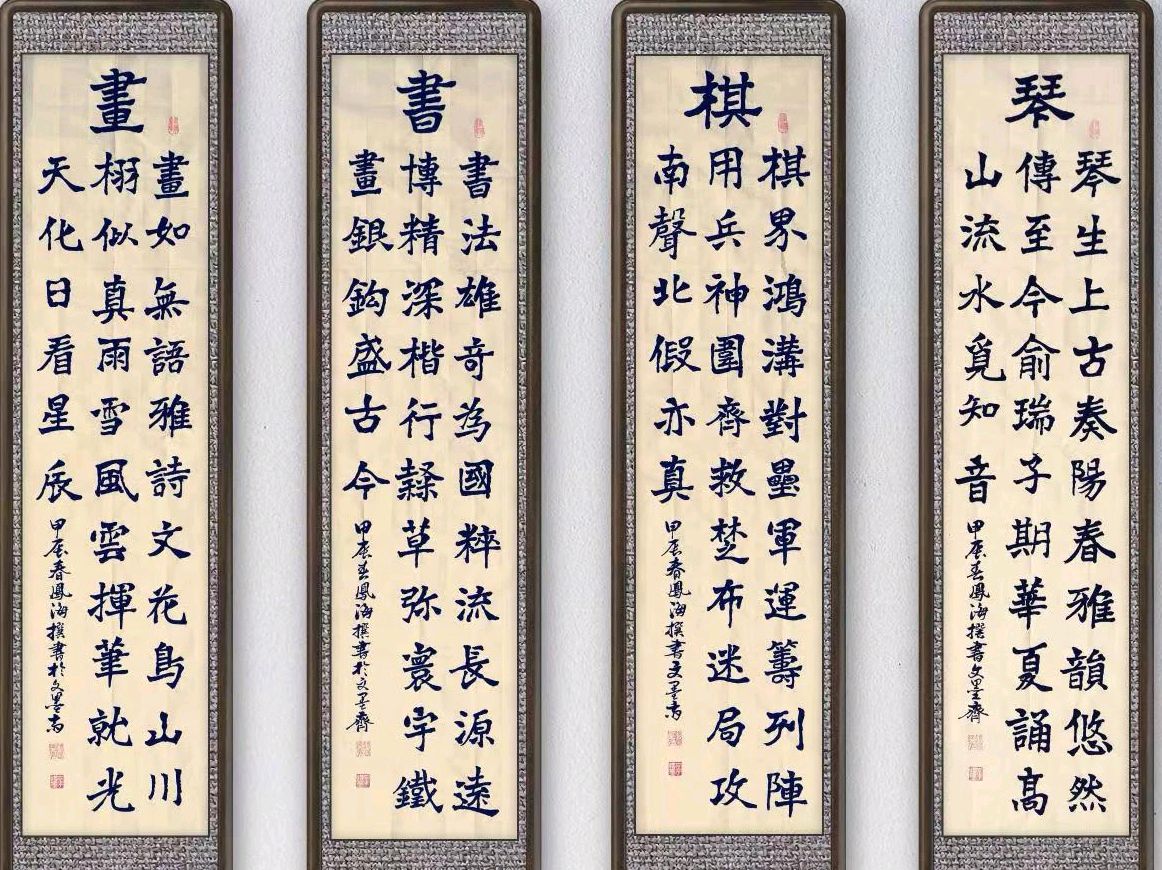 琴
琴生上古奏陽春雅韻悠然
傳至今俞瑞子期華夏誦高
山流水覓知音
甲辰春鳳海撰書文墨齋
棋
棋界鴻溝對壘軍運籌列陣
用兵神圍齊救楚布迷局攻
南聲北假亦真
甲辰春鳳海撰書文墨齋
書
書法雄奇為國粹流長源遠
博精深楷行隸草弥寰宇鐵
畫銀鈎盛古今
甲辰春鳳海撰書於文墨齋
畫
畫如無語雅詩文花鳥山川
栩似真雨雪風雲揮筆就光
天化日看星辰
甲辰春鳳海撰書於文墨齋